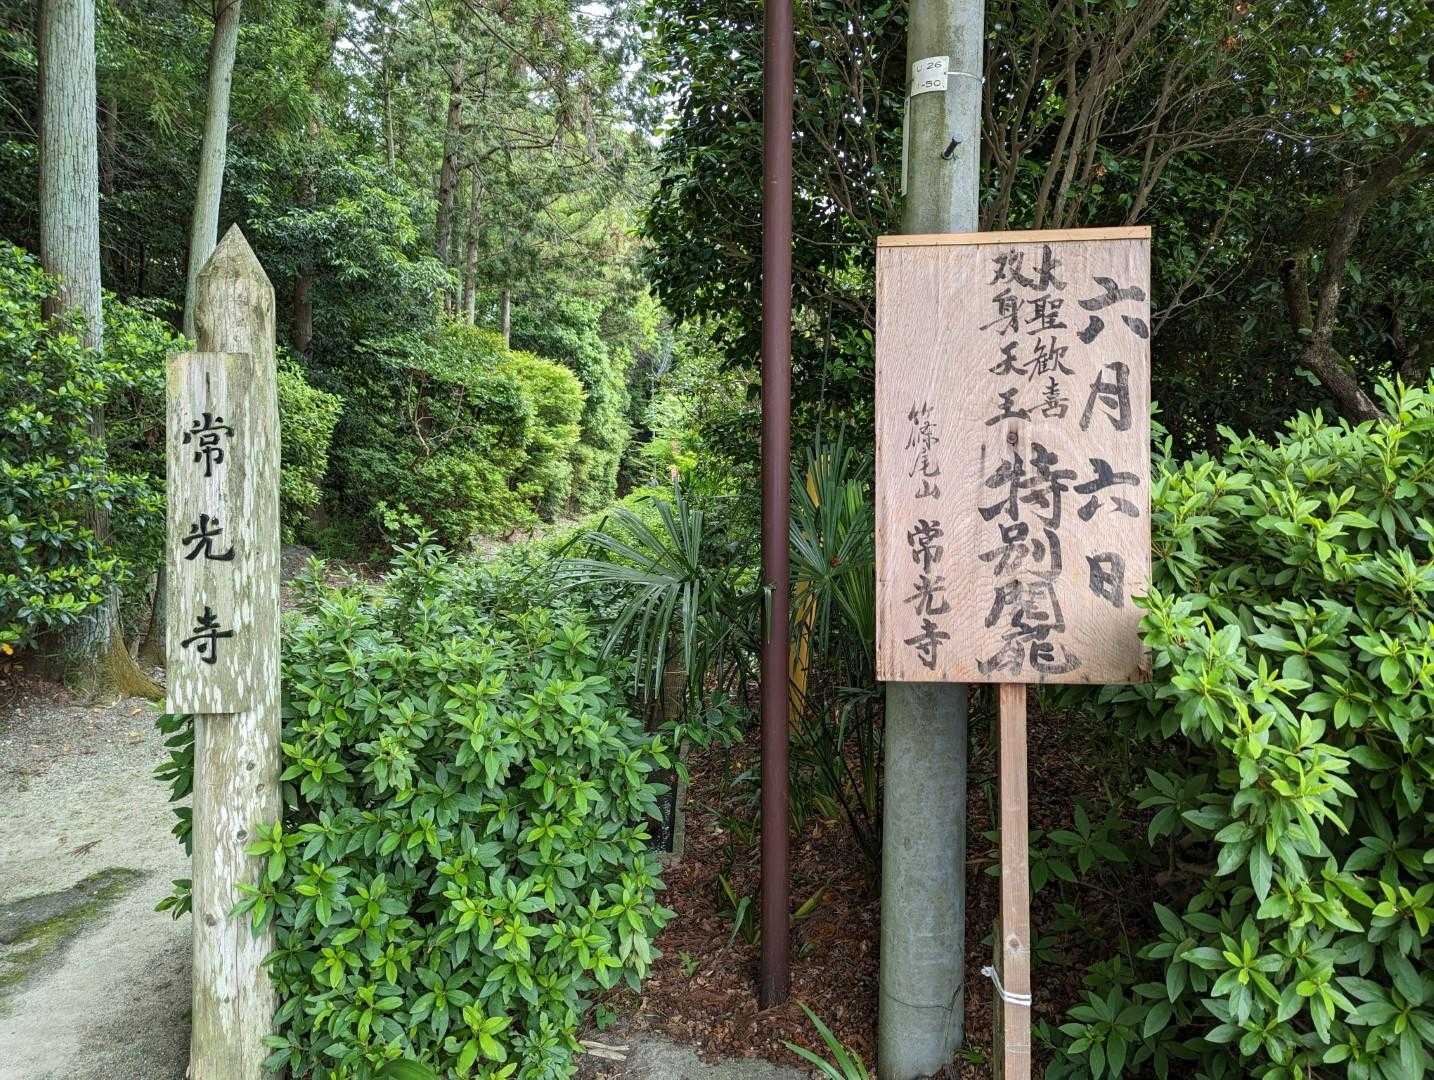 常光寺
六月六日
大聖歓喜
双身天王
特別開龕
篠尾山 常光寺
U.26
1-50